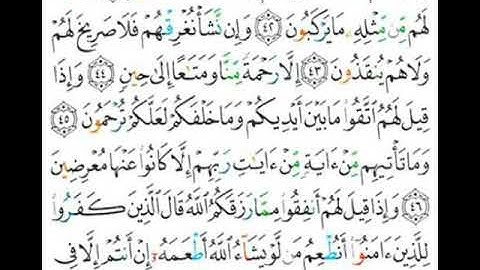 لَهُم مِّن مِّثْلِهِۦ مَا يَرْكَبُونَ ٤٢ وَإِن نَّشَأْ نُغْرِقْهُمْ فَلَا صَرِيخَ لَهُمْ
وَلَا هُمْ يُنقَذُونَ ٤٣ إِلَّا رَحْمَةً مِّنَّا وَمَتَٰعًا إِلَىٰ حِينٍ ٤٤ وَإِذَا
قِيلَ لَهُمُ ٱتَّقُوا۟ مَا بَيْنَ أَيْدِيكُمْ وَمَا خَلْفَكُمْ لَعَلَّكُمْ تُرْحَمُونَ ٤٥
وَمَا تَأْتِيهِم مِّنْ ءَايَةٍ مِّنْ ءَايَٰتِ رَبِّهِمْ إِلَّا كَانُوا۟ عَنْهَا مُعْرِضِينَ
٤٦ وَإِذَا قِيلَ لَهُمْ أَنفِقُوا۟ مِمَّا رَزَقَكُمُ ٱللَّهُ قَالَ ٱلَّذِينَ كَفَرُوا۟
لِلَّذِينَ ءَامَنُوٓا۟ أَنُطْعِمُ مَن لَّوْ يَشَآءُ ٱللَّهُ أَطْعَمَهُۥٓ إِنْ أَنتُمْ إِلَّا فِى